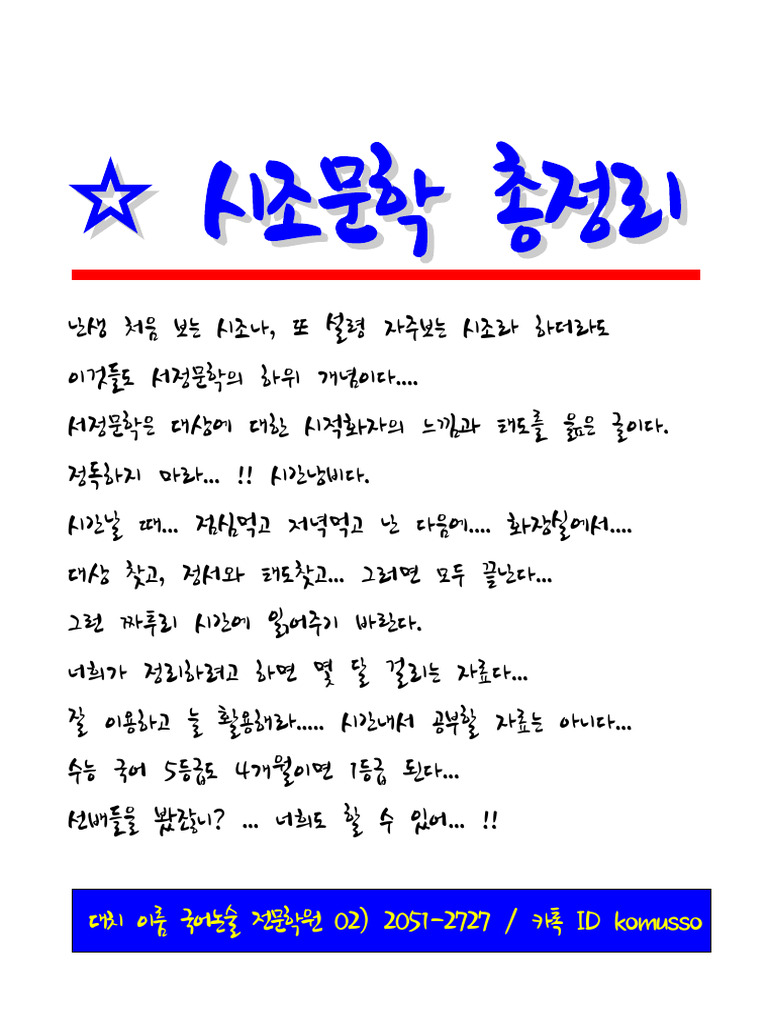 ☆ 시조문학 총정리
난생 처음 보는 시조나, 또 설령 자주보는 시조라 하더라도
이것들도 서정문학의 하위 개념이다....
서정문학은 대상에 대한 시적화자의 느낌과 태도를 읊은 글이다.
정독하지 마라... !! 시간낭비다.
시간날 때... 점심먹고 저녁먹고 난 다음에.... 화장실에서....
대상 찾고, 정서와 태도찾고... 그러면 모두 끝난다...
그런 짜투리 시간에 읽어주기 바란다.
너희가 정리하려고 하면 몇 달 걸리는 자료다...
잘 이용하고 늘 활용해라..... 시간내서 공부할 자료는 아니다...
수능 국어 5등급도 4개월이면 1등급 된다...
선배들을 봤잖니? ... 너희도 할 수 있어... !!
대치 이룸 국어논술 전문학원 02) 2051-2727 / 카톡 ID komusso